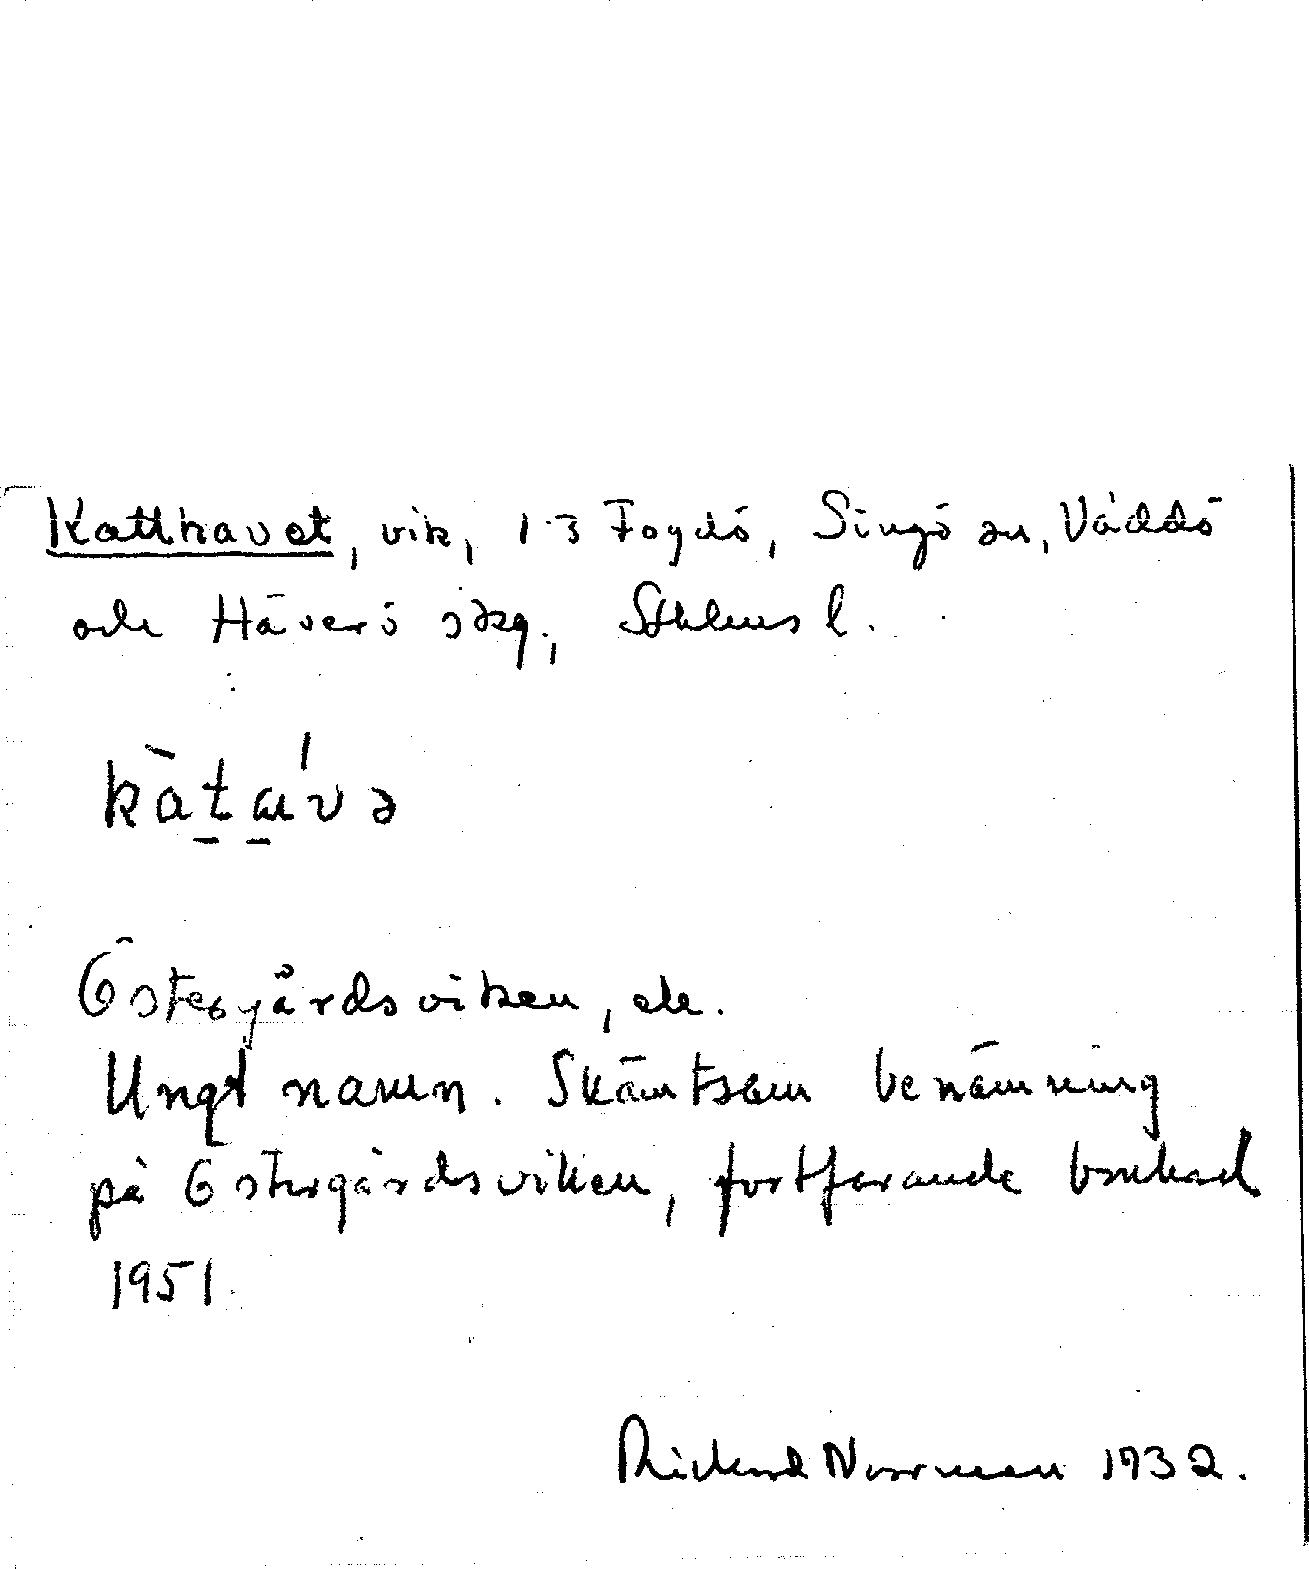 Katthavet, vik, 1-3 Fogdö, Singö sn, Väddö
och Häverö skg., Sthlms l.
kàta̱və
Östergårdsviken, ek.
Ungt namn. Skämtsam benämning
på Östergårdsviken, fortfarande brukad
1951.
Rickard Norrman 1932.